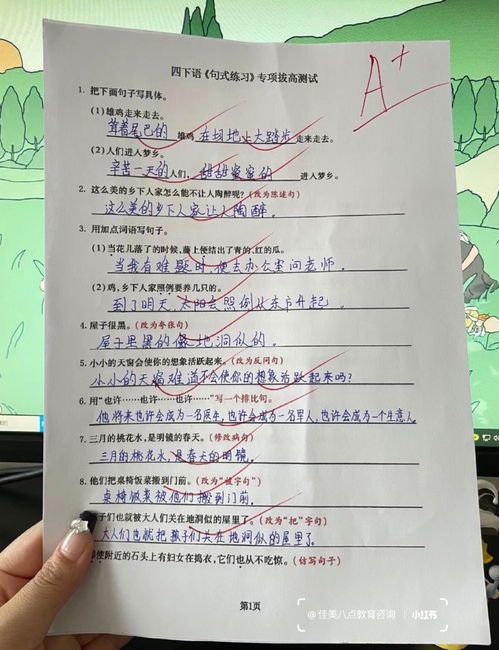 四下语《句式练习》专项拔高测试
A+
1. 把下面句子写具体。
(1)雄鸡走来走去。
耸着尾巴的 雄鸡 在场地上大踏步 走来走去。
(2)人们进入梦乡。
辛苦一天的 人们， 甜甜蜜蜜的 进入梦乡。
2. 这么美的乡下人家怎么能不让人陶醉呢？(改为陈述句)
这么美的乡下人家让人陶醉。
3. 用加点词语写句子。
(1)当花儿落了的时候，藤上便结出了青的、红的瓜。
当我有难题时，便去办公室问老师。
(2)鸡，乡下人家照例要养几只的。
到了明天，太阳会照例从东方升起。
4. 屋子很黑。(改为夸张句)
屋子里黑的像地洞似的。
5. 小小的天窗会使你的想象活跃起来。(改为反问句)
小小的天窗难道不会使你的想象活跃起来吗？
6. 用“也许……也许……也许……”写一个排比句。
他将来也许会成为一名医生，也许会成为一名军人，也许会成为一个生意人
7. 三月的桃花水，是明镜的春天。(修改病句)
三月的桃花水，是春天的明镜。
8. 他们把桌椅饭菜搬到门前。(改为“被字句”)
桌椅饭菜被他们搬到门前。
子们也就被大人们关在地洞似的屋里了。(改为“把”字句)
大人们也就把孩子们关在地洞似的屋里了。
使附近的石头上有妇女在捣衣，它们也从不吃惊。(仿写句子)
第1页
@佳美八点教育咨询 小红书